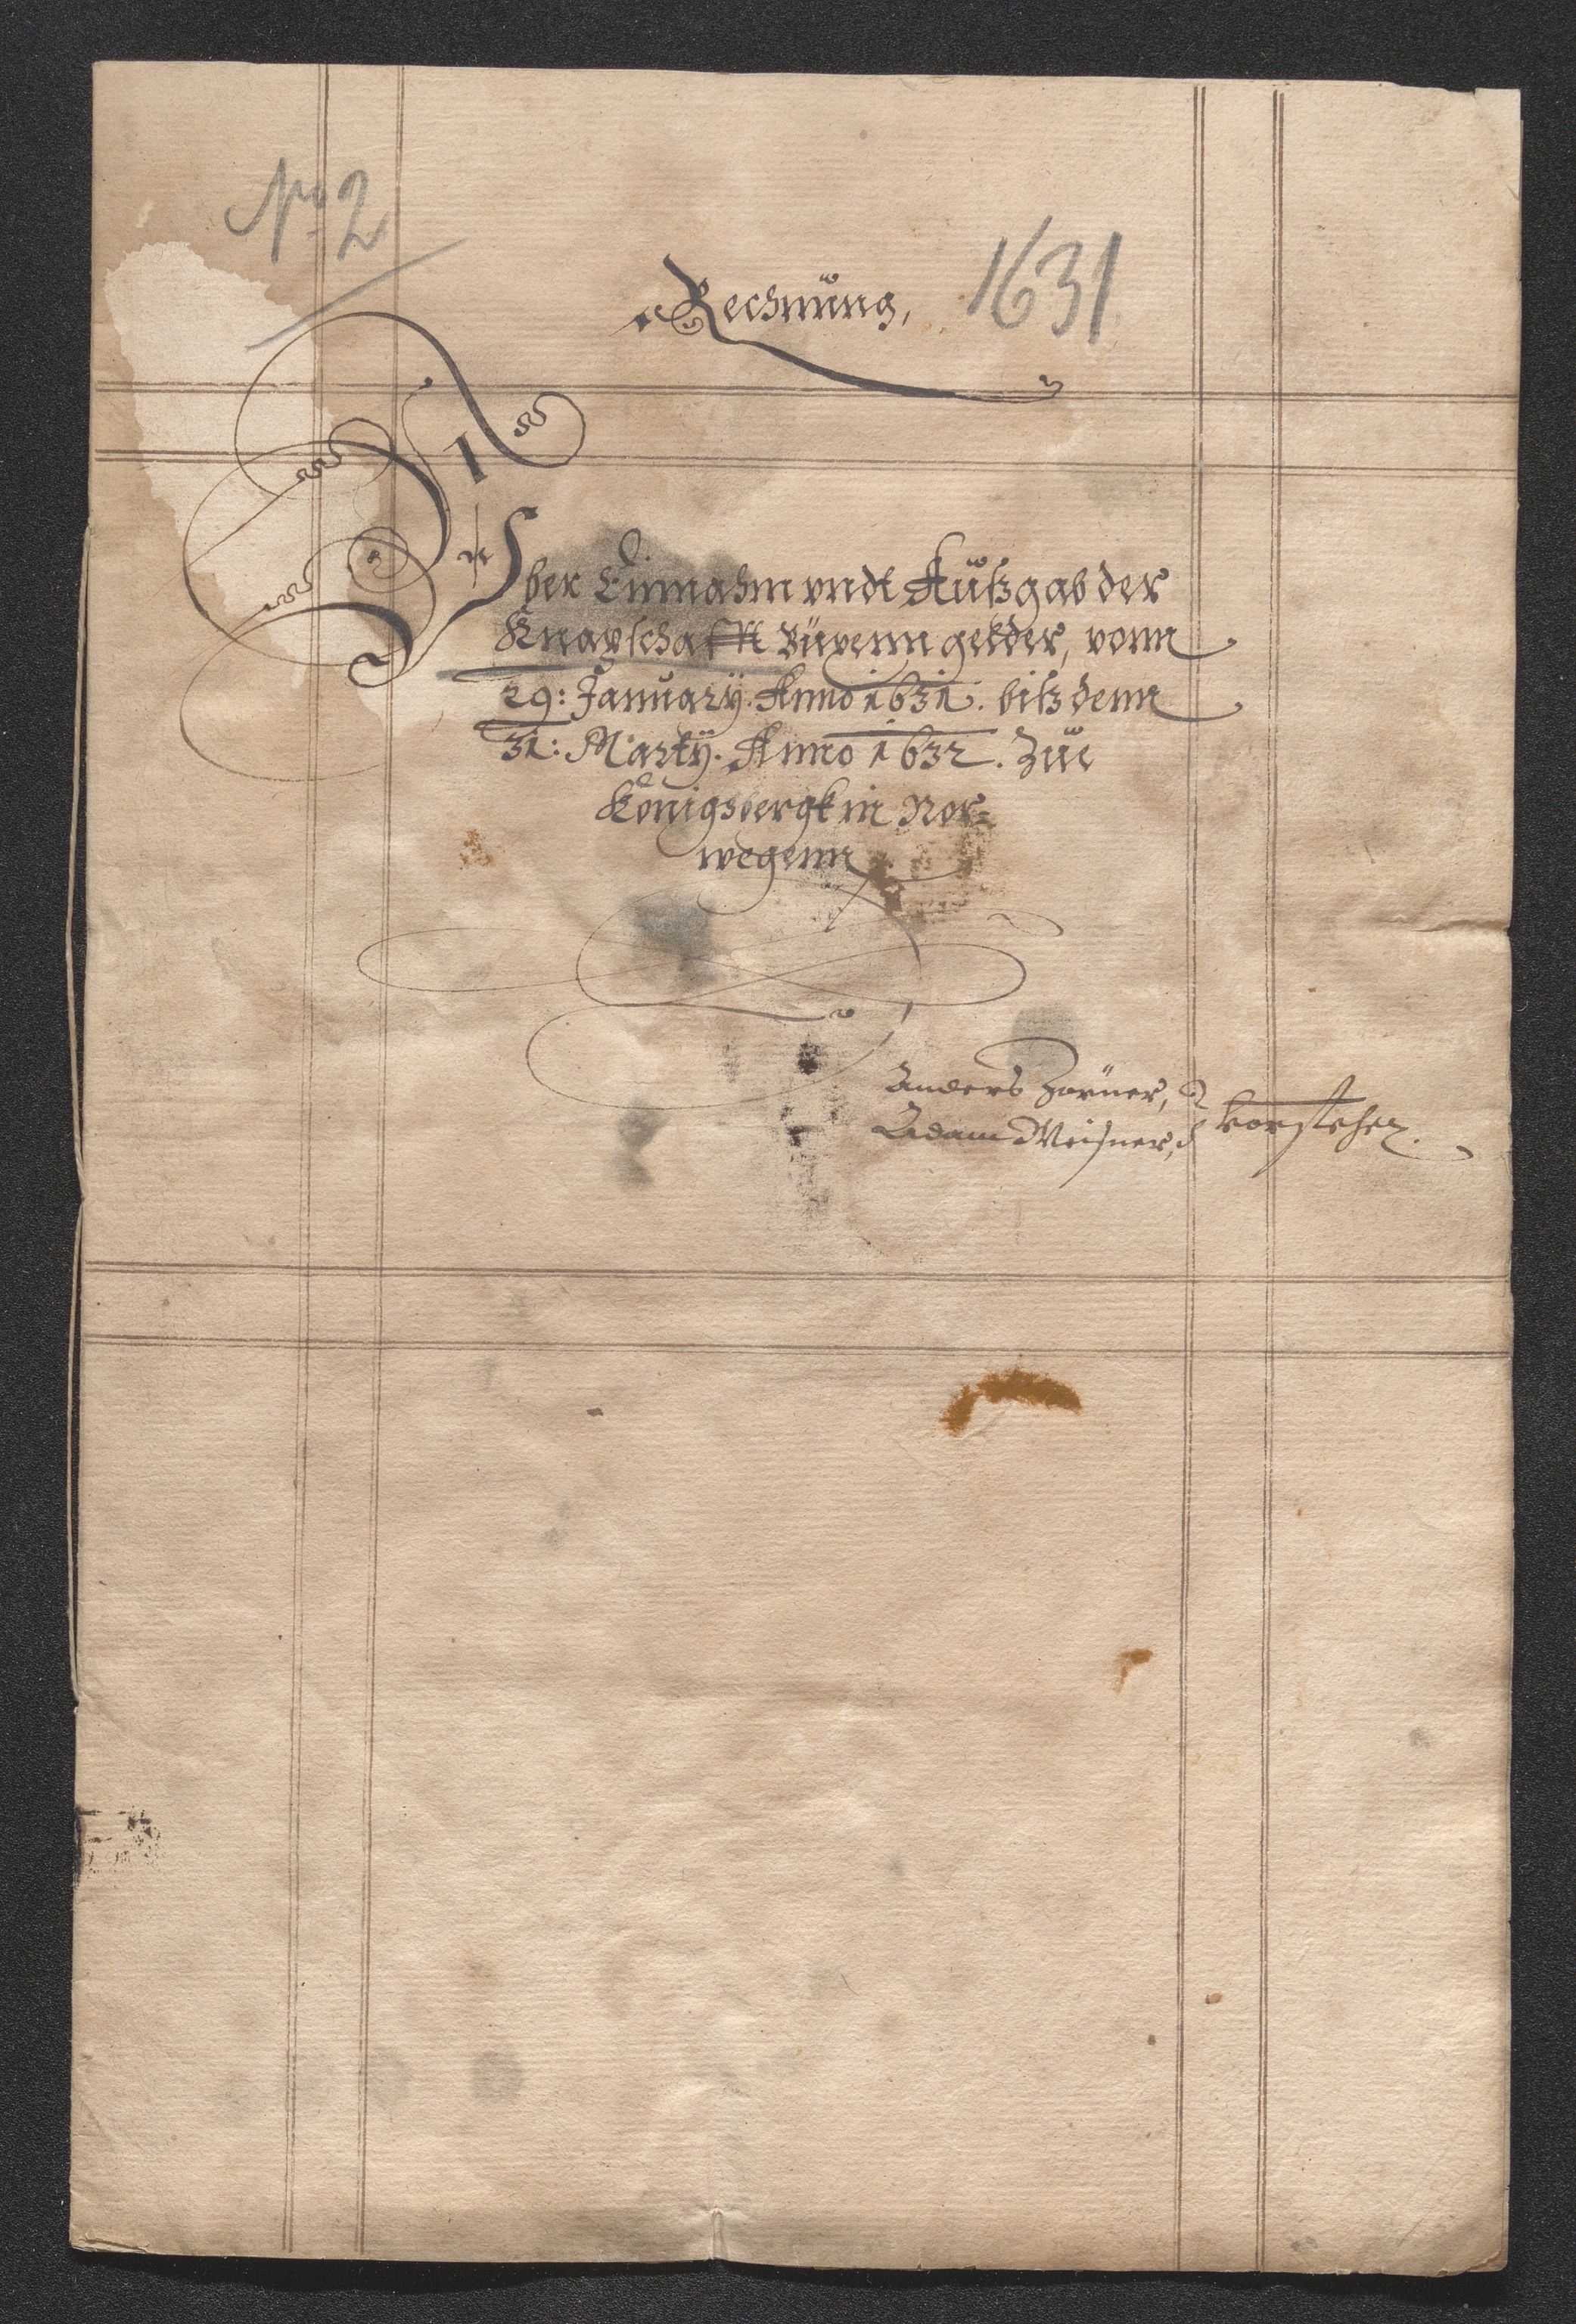 No 2
1631
Rechnüng,
Vber Einnahm vndt Außgab der
Knapschafft Büxenn gelder, vonn
29: Januarÿ. Anno 1631. biß denn
31: Martÿ. Anno 1632. Zue
Königsbergk in Nor=
wegenn
Anders Zorner,
Adam Meisner, Vorsteher.